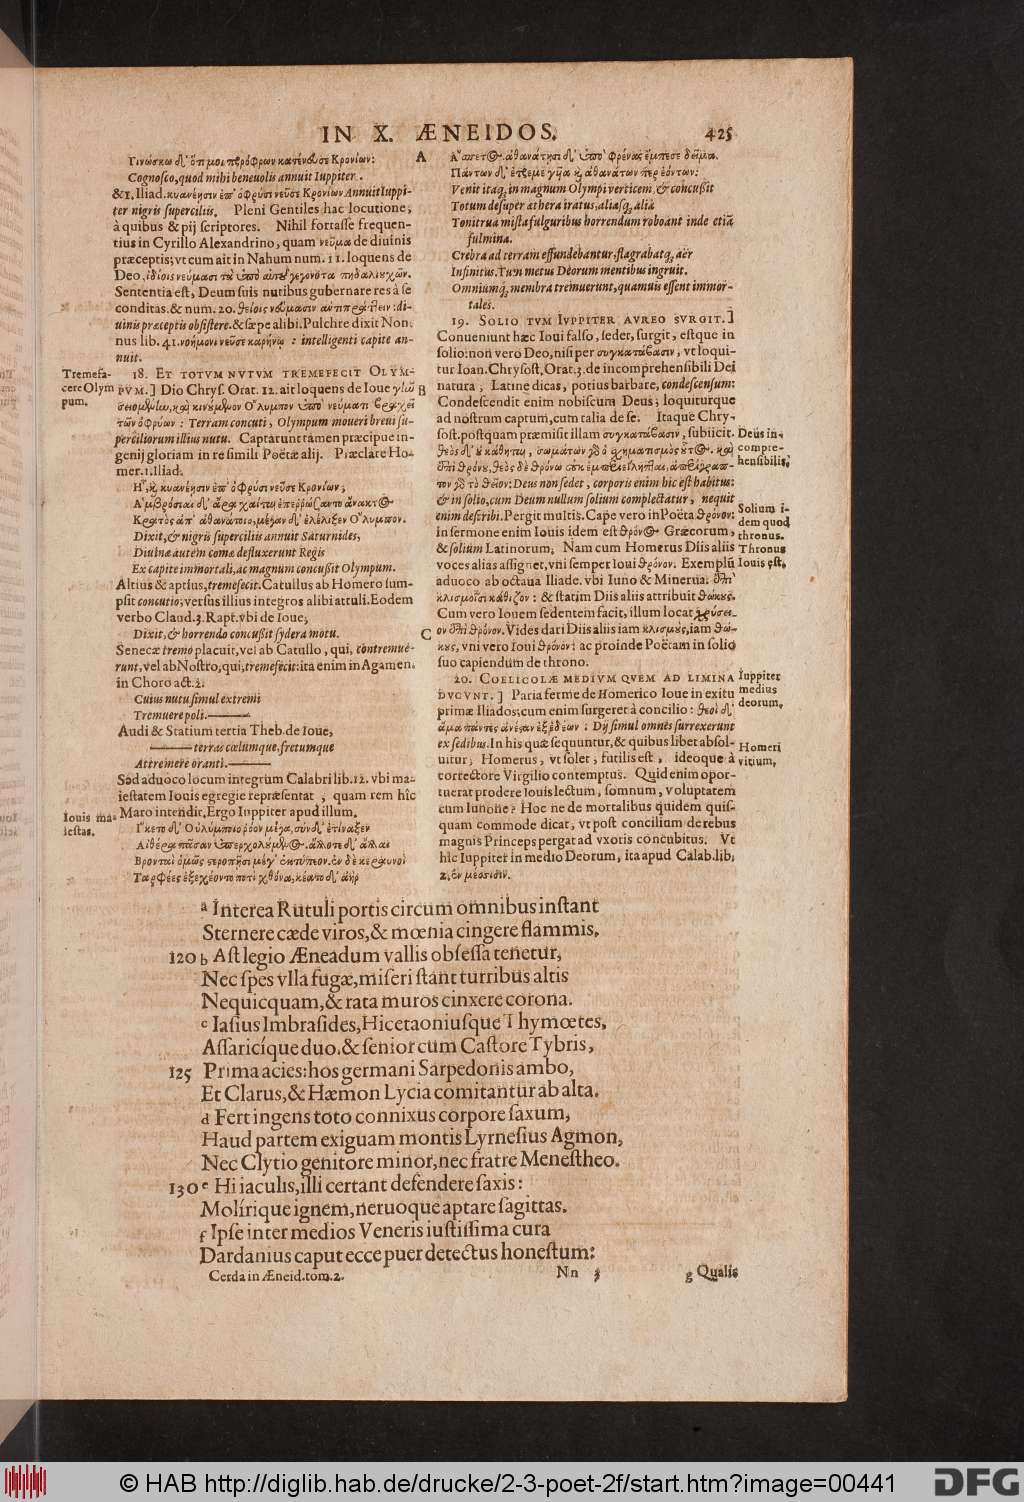 IN X. ÆNEIDOS.
425
Cognosco, quod mihi beneuolis annuit Iuppiter.
&1. Iliad. κυανέησιν ἐπ' ὀφρύσι νεῦσε Κρονίων Annuit Iuppi-
ter nigris superciliis. Pleni Gentiles hac locutione,
à quibus & pij scriptores. Nihil fortasse frequen-
tius in Cyrillo Alexandrino, quam νεῦμα de diuinis
præceptis; vt cum ait in Nahum num. 11. loquens de
Deo, ἰδίοις νεύμασι
Sententia est, Deum suis nutibus gubernare res à se
conditas. & num. 20. θείοις νεύμασιν ἀντιπράττειν: di-
uinis præceptis obsistere. & sæpe alibi. Pulchre dixit Non-
nus lib. 41. νοήμονι νεῦσε καρήνῳ : intelligenti capite an-
nuit.
Tremefa-
cere Olym
pum.
18. ET TOTVM NVTVM TREMEFECIT OLYM-
PVM.] Dio Chrys. Orat. 12. ait loquens de Ioue
τῶν ὀφρύων : Terram concuti, Olympum moueri breui su-
perciliorum illius nutu. Captarunt tamen præcipue in-
genij gloriam in re simili Poëtæ alij. Præclare Ho-
mer. 1. Iliad.
Ἦ, ϗ κυανέησιν ἐπ' ὀφρύσι νεῦσε Κρονίων,
Κρατὸς ἀπ' ἀθανάτοιο, μέγαν δ' ἐλέλιξεν Ὄλυμπον.
Dixit, & nigris superciliis annuit Saturnides,
Diuinæ autem comæ defluxerunt Regis
Ex capite immortali, ac magnum concußit Olympum.
Altius & aptius, tremefecit. Catullus ab Homero sum-
psit concutio; versus illius integros alibi attuli. Eodem
verbo Claud. 3. Rapt. vbi de Ioue,
Dixit, & horrendo concußit sydera motu.
Senecæ tremo placuit, vel ab Catullo, qui, contremue-
runt, vel ab Nostro, qui, tremefecit: ita enim in Agamen.
in Choro act. 2.
Cuius nutu simul extremi
Tremuere poli.
Audi & Statium tertia Theb. de Ioue,
terras cœlumque, fretumque
Attremere oranti.
Sed aduoco locum integrum Calabri lib. 12. vbi ma-
iestatem Iouis egregie repræsentat, quam rem hîc
Iouis ma-
iestas.
Maro intendit. Ergo Iuppiter apud illum.
A
Πάντων δ' ἔτρεμε γυῖα ϗ ἀθανάτων περ ἐόντων:
Venit itaq; in magnum Olympi verticem, & concußit
Totum desuper æthera iratus, aliasq; aliâ
Tonitrua mista fulguribus horrendum roboant inde etiâ
fulmina.
Crebra ad terram effundebantur, flagrabatq; aër
Infinitus. Tum metus Deorum mentibus ingruit.
Omniumq; membra tremuerunt, quamuis essent immor-
tales.
19. SOLIO TVM IVPPITER AVREO SVRGIT.]
Conueniunt hæc Ioui falso, sedet, surgit, estque in
solio: non vero Deo, nisi per συγκατάβασιν, vt loqui-
tur Ioan. Chrysost. Orat. 3. de incomprehensibili Dei
B
natura, Latine dicas, potius barbare, condescensum:
Condescendit enim nobiscum Deus; loquiturque
ad nostrum captum, cum talia de se. Itaque Chry-
sost. postquam præmisit illam συγκατάβασιν, subiicit.
Deus in-
compre-
hensibilis.
Deus non sedet, corporis enim hic est habitus:
& in solio, cum Deum nullum solium complectatur, nequit
enim describi. Pergit multis. Cape vero in Poëta θρόνον:
in sermone enim Iouis idem est θρόνος Græcorum,
& solium Latinorum; Nam cum Homerus Diis aliis
voces alias assignet, vni semper Ioui θρόνον. Exemplū
aduoco ab octaua Iliade. vbi Iuno & Minerua. ἐπὶ
κλισμοῖσι κάθιζον : & statim Diis aliis attribuit θώκους.
Solium i-
dem quod
thronus.
Thronus
Iouis est.
Cum vero Iouem sedentem facit, illum locat χρύσει-
C
ον ἐπὶ θρόνον. Vides dari Diis aliis iam κλισμοὺς, iam θώ-
κους, vni vero Ioui θρόνον: ac proinde Poëtam in solio
suo capiendum de throno.
20. COELICOLÆ MEDIVM QVEM AD LIMINA
DVCVNT.] Paria ferme de Homerico Ioue in exitu
primæ Iliados; cum enim surgeret à concilio : θεοὶ δ'
ἅμα πάντες ἀνέσαν ἐξ ἑδέων : Dij simul omnes surrexerunt
ex sedibus. In his quæ sequuntur, & quibus libet absol-
uitur; Homerus, vt solet, futilis est, ideoque à
correctore Virgilio contemptus. Quid enim opor-
tuerat prodere Iouis lectum, somnum, voluptatem
cum Iunone? Hoc ne de mortalibus quidem quis-
quam commode dicat, vt post concilium de rebus
magnis Princeps pergat ad vxoris concubitus. Vt
hîc Iuppiter in medio Deorum, ita apud Calab. lib.
2. ἐν μέσοισιν.
Iuppiter
medius
deorum.
Homeri
vitium.
a Interea Rutuli portis circum omnibus instant
Sternere cæde viros, & mœnia cingere flammis.
120 b Ast legio Æneadum vallis obsessa tenetur,
Nec spes vlla fugæ, miseri stant turribus altis
Nequicquam, & rata muros cinxere corona.
c Iasius Imbrasides, Hicetaoniusque Thymœtes,
Assaricíque duo, & senior cum Castore Tybris,
125 Prima acies: hos germani Sarpedonis ambo,
Et Clarus, & Hæmon Lycia comitantur ab alta.
d Fert ingens toto connixus corpore saxum,
Haud partem exiguam montis Lyrnesius Agmon,
Nec Clytio genitore minor, nec fratre Menestheo.
130 e Hi iaculis, illi certant defendere saxis:
Molírique ignem, neruoque aptare sagittas.
f Ipse inter medios Veneris iustissima cura
Dardanius caput ecce puer detectus honestum:
Cerda in Æneid. tom. 2.
Nn 3
g Qualis
© HAB http://diglib.hab.de/drucke/2-3-poet-2f/start.htm?image=00441
DFG